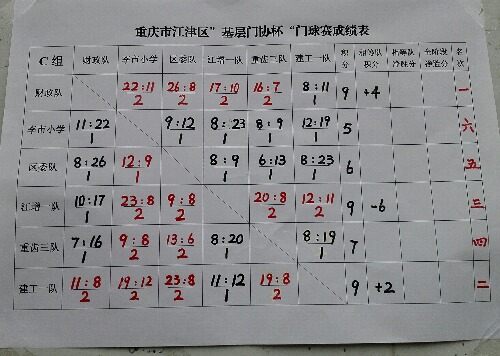 重庆市江津区"基层门协杯"门球赛成绩表
C组 财政队 李市小学 区委队 江增一队 重齿三队 建工一队 积分 相等队积分 相等队净胜分 全阶段净胜分 名次
财政队 22:11 2 26:8 2 17:10 2 16:7 2 8:11 1 9 +4 一
李市小学 11:22 1 9:12 1 8:23 1 8:9 1 12:19 1 5 六
区委队 8:26 1 12:9 1 8:9 1 6:13 1 8:23 1 6 五
江增一队 10:17 1 23:8 2 9:8 2 20:8 2 12:11 2 9 -6 三
重齿三队 7:16 1 9:8 2 13:6 2 8:20 1 8:19 1 7 四
建工一队 11:8 2 19:12 2 23:8 2 11:12 1 19:8 2 9 +2 二